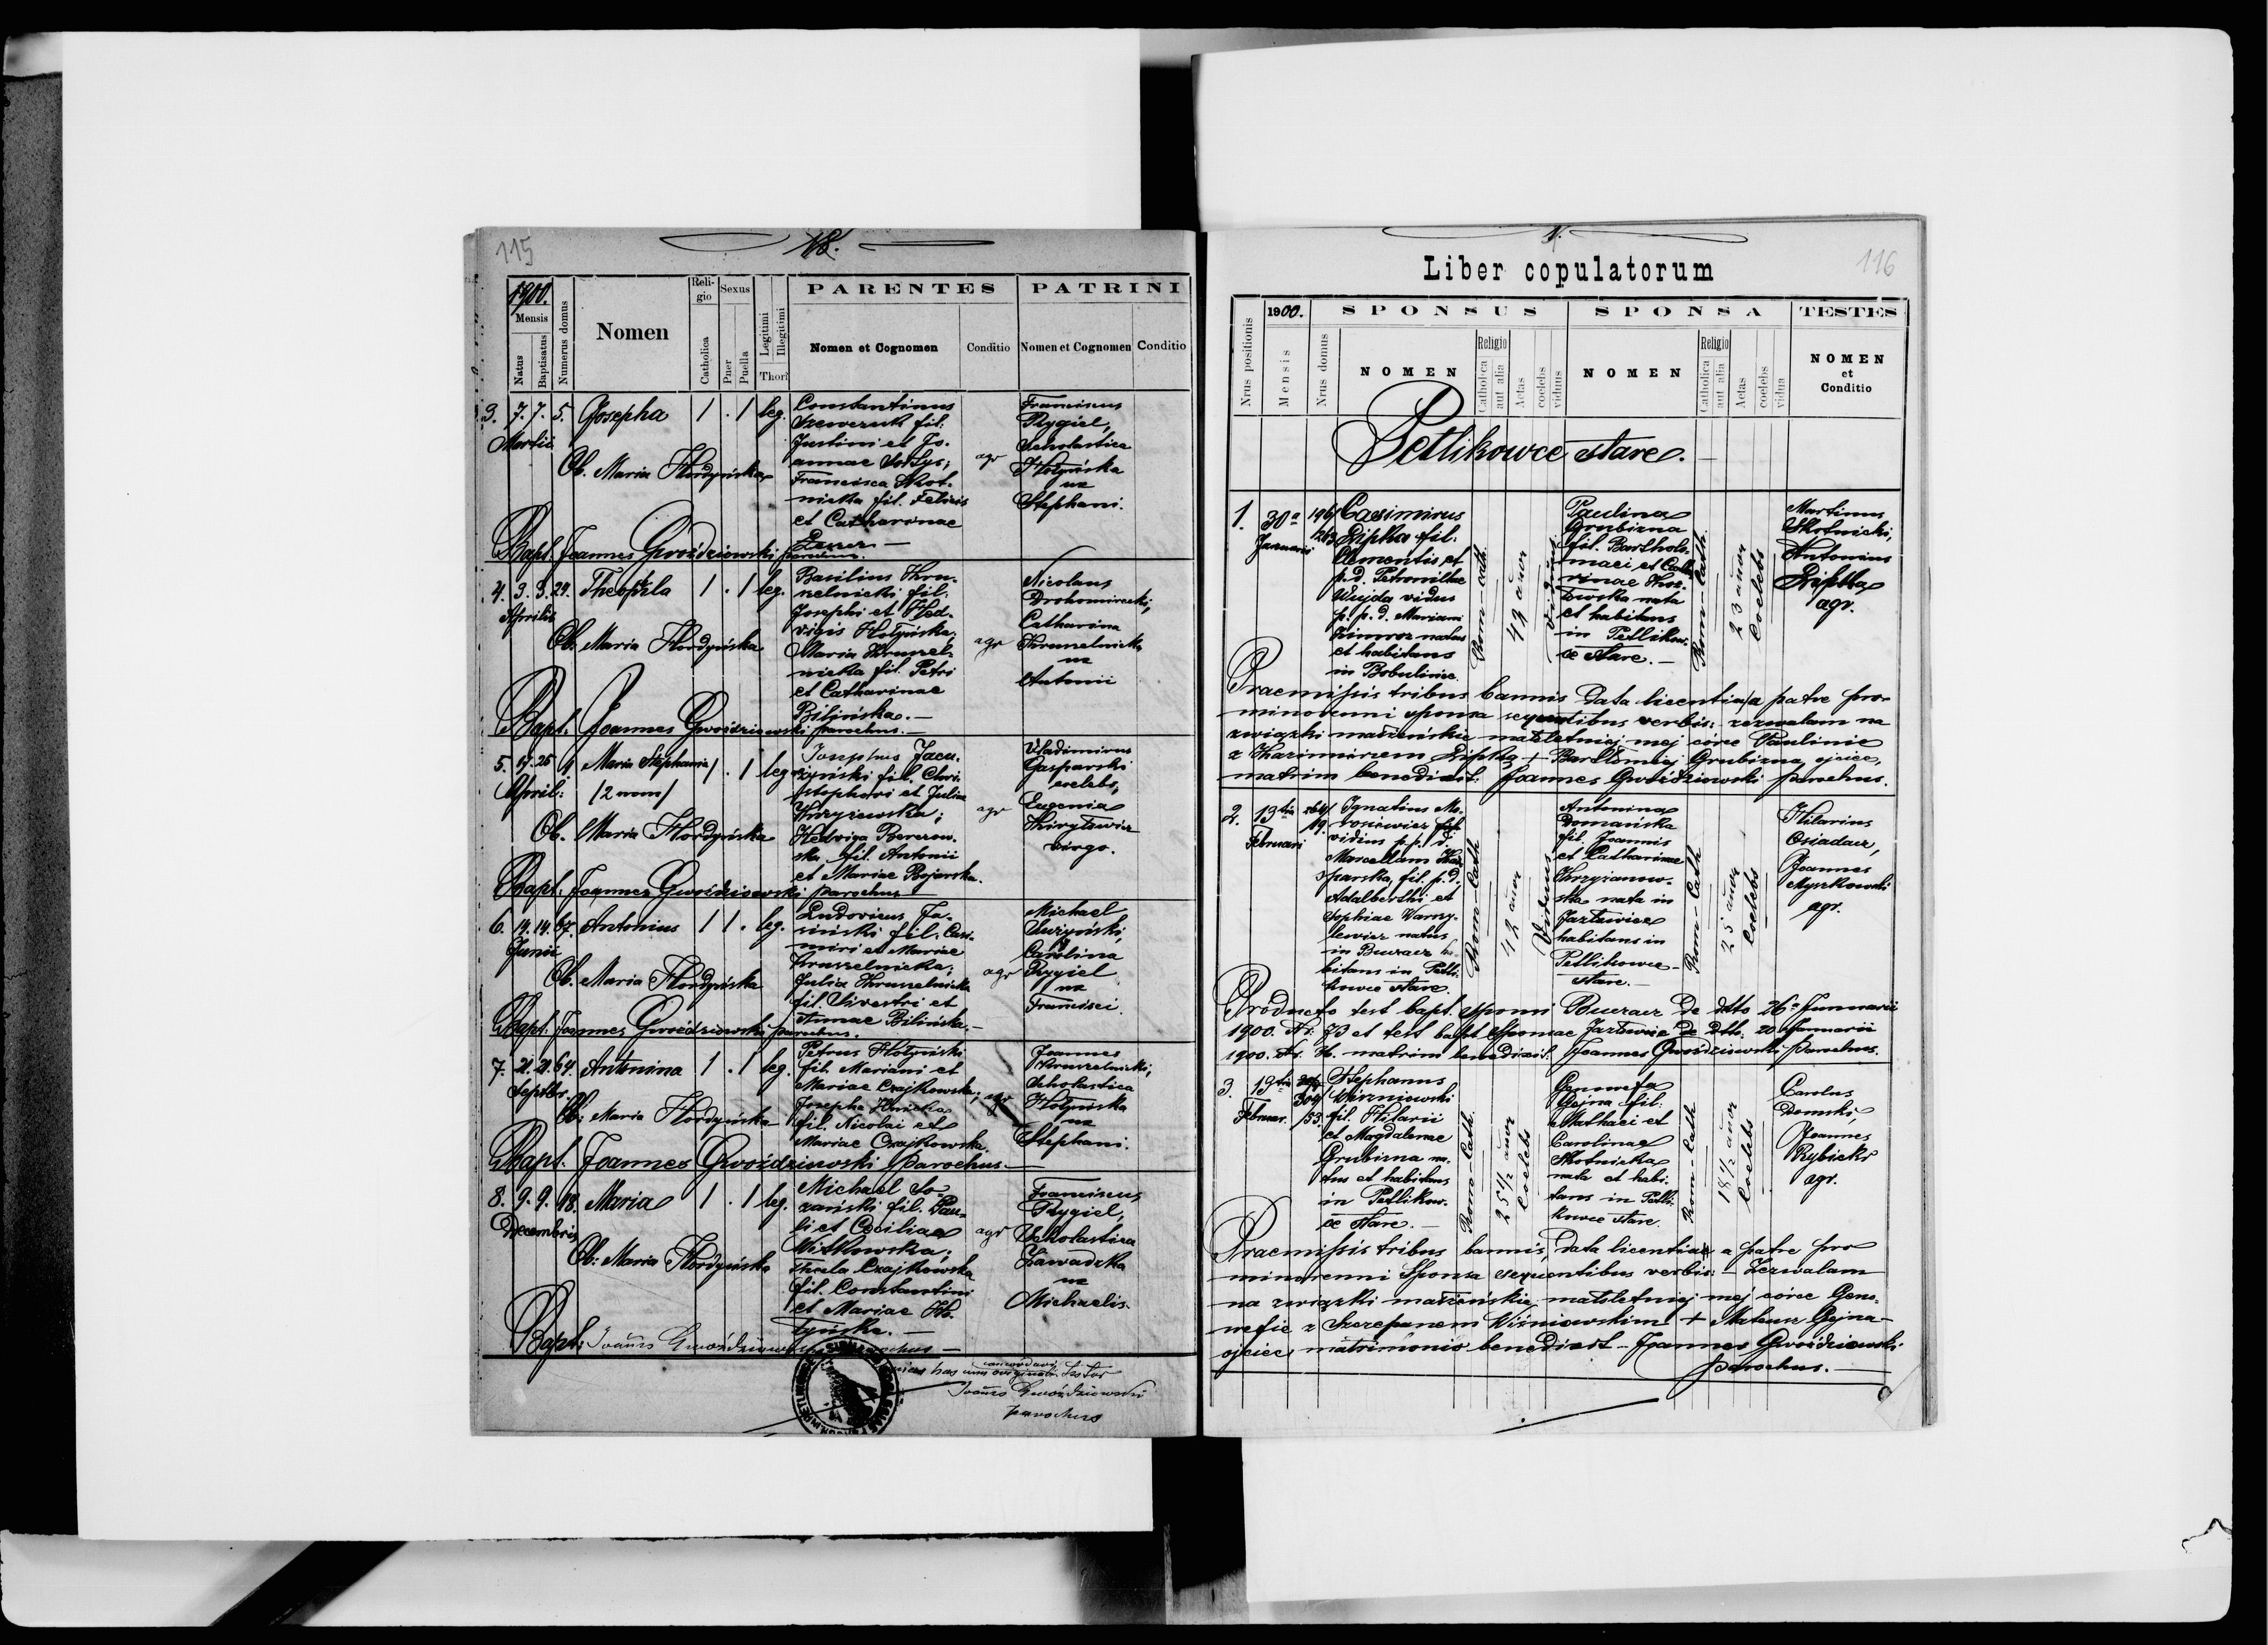 115
18.
1900.
Mensis
Natus
Baptisatus
Numerus domus
Nomen
Religio
Catholica
Sexus
Puer
Puella
Legitimi
Illegitimi
Thori
PARENTES
Nomen et Cognomen
Conditio
PATRINI
Nomen et Cognomen
Conditio
3. 7. 7. 5. Josepha 1 . 1 leg.
Martii
Ob. Maria Hordyńska
Constantinus
Szewczuk fil.
Justini et Jo-
annae
Francisca Skot-
nicka fil. Felicis
et Catharinae
agr
Franciscus
Rygiel,
Scholastica
Hołyńska
ux
Stephani.
Bapt. Joannes Gwoździowski parochus.
4. 3. 3. 29. Theophila 1 . 1 leg.
Aprilis
Ob. Maria Hordyńska
Basilius Krus-
zelnicki fil.
Josephi et Hed-
vigis Hołyńska;
Maria Kruszel-
nicka fil. Petri
et Catharinae
Bilińska.
agr
Nicolaus
Drohomirecki,
Catharina
Kruszelnicka
ux
Antonii
Bapt. Joannes Gwoździowski parochus.
5. 17. 25 Maria Stephania 1 . 1 leg.
April: /2 nom/
Ob. Maria Hordyńska
Josephus Jacu-
szyński fil. Chri-
stophori et Juliae
Hedviga Berezow-
ska fil. Antonii
et Mariae Bojarska.
agr
Vladimirus
Gasparski
coelebs,
Eugenia
virgo.
Bapt. Joannes Gwoździowski parochus
6. 14. 14. 67. Antonius 1 1 . leg.
Junii
Ob. Maria Hordyńska
Ludovicus Ja-
siński fil. Casi-
miri et Mariae
Kruszelnicka;
Julia Kruszelnicka
fil. Silvestri et
Annae Bilińska.
agr
Michael
Carolina
Rygiel
ux
Francisci.
Bapt. Joannes Gwoździowski parochus.
7. 21. 21. 64. Antonina 1 . 1 leg.
Septbr.
Ob: Maria Hordyńska
Petrus Hołyński
fil. Mariani et
Mariae Czajkowska;
Josepha
fil. Nicolai et
Mariae Czajkowska
agr
Joannes
Kruszelnicki,
Scholastica
Hołyńska
ux
Stephani.
Bapt. Joannes Gwoździowski parochus.
8. 9. 9. 18. Maria 1 . 1 leg.
Decembris
Ob: Maria Hordyńska
Michael So-
zański fil. Pau-
li et Ceciliae
Witkowska;
Czajkowska
fil. Constantini
et Mariae Ho-
łyńska.
agr
Franciscus
Rygiel,
Scholastica
Zawadzka
ux
Michaelis.
Bapt: Joannes Gwoździowski parochus
has cum originali concordari testor
Joannes Gwoździowski
parochus
1.
116
Liber copulatorum
Nrus positionis
1900.
Mensis
Nrus domus
SPONSUS
NOMEN
Religio
Catholica aut alia
Aetas
coelebs
viduus
SPONSA
NOMEN
Religio
Catholica aut alia
Aetas
coelebs
vidua
TESTES
NOMEN
et
Conditio
Petlikowce stare.
1. 30a
Januarii
196/
Casimirus
Lipka fil.
Clementis et
p. d. Petronillae
Wujda vidus
p. p. d. Mariam
natus
et habitans
in Bobulińce.
Rom-cath.
viduus
Paulina
Grubizna
fil. Bartholo-
maei et Catha-
rinae
nata
et habitans
in Petlikow-
ce stare.
Rom-cath.
23 annor
coelebs
Martinus
Skotnicki,
Antonius
Lipka
agr.
Praemissis tribus bannis data licentia a patre pro
minorenni sponsa sequentibus verbis: zezwalam na
związki małżeńskie małoletniej mej córce Paulinie
z Kazimierzem Lipką + Bartłomiej Grubizna, ojciec,
matrim benedixit: Joannes Gwoździowski parochus.
2. 13tia
Februari
264/
19.
Ignatius Mo-
rosiewicz fil
vidius p. p. d.
Marcellam Ka-
sparska, fil. p. d.
Adalberthi et
Sophiae Warzy-
lewicz natus
in Buczacz ha-
bitans in Petli-
kowce stare.
Rom-Cath
42 annor
Viduus
Antonina
Domańska
fil. Joannis
et Catharinae
Chrzanow-
ska nata in
Jazłowiec
habitans in
Petlikowce
stare.
Rom-Cath
25 annor
coelebs
Hilarius
Osiadacz,
Joannes
Myszkowski
agr.
Producto test bapt. sponsi Buczacz de dtto 26a Januarii
1900. Nr. 73 et test bapt sponsae Jazłowiec de dtto. 20 Januarii
1900. Nr. 34. matrim benedixit: Joannes Gwoździowski parochus.
3. 13tia
Februar.
304/
153.
Stephanus
Wiszniowski
fil. Hilarii
et Magdalenae
Grubizna na-
tus et habitans
in Petlikow-
ce stare.
Rom-Cath.
25 1/2 annor
coelebs
Genowefa
Gejna fil.
Mathaei et
Carolinae
Skotnicka
nata et habi-
tans in Petli-
kowce stare.
Rom-Cath
18 1/2 annor
coelebs
Carolus
Domski,
Joannes
Rybicki
agr.
Praemissis tribus bannis, data licentia a patre pro
minorenni sponsa sequentibus verbis: – Zezwalam
na związki małżeńskie małoletniej mej córce Geno-
wefie z Szczepanem Wiśniowskim + Mateusz Gejna –
ojciec, matrimonio benedixit – Joannes Gwoździowski
parochus. –